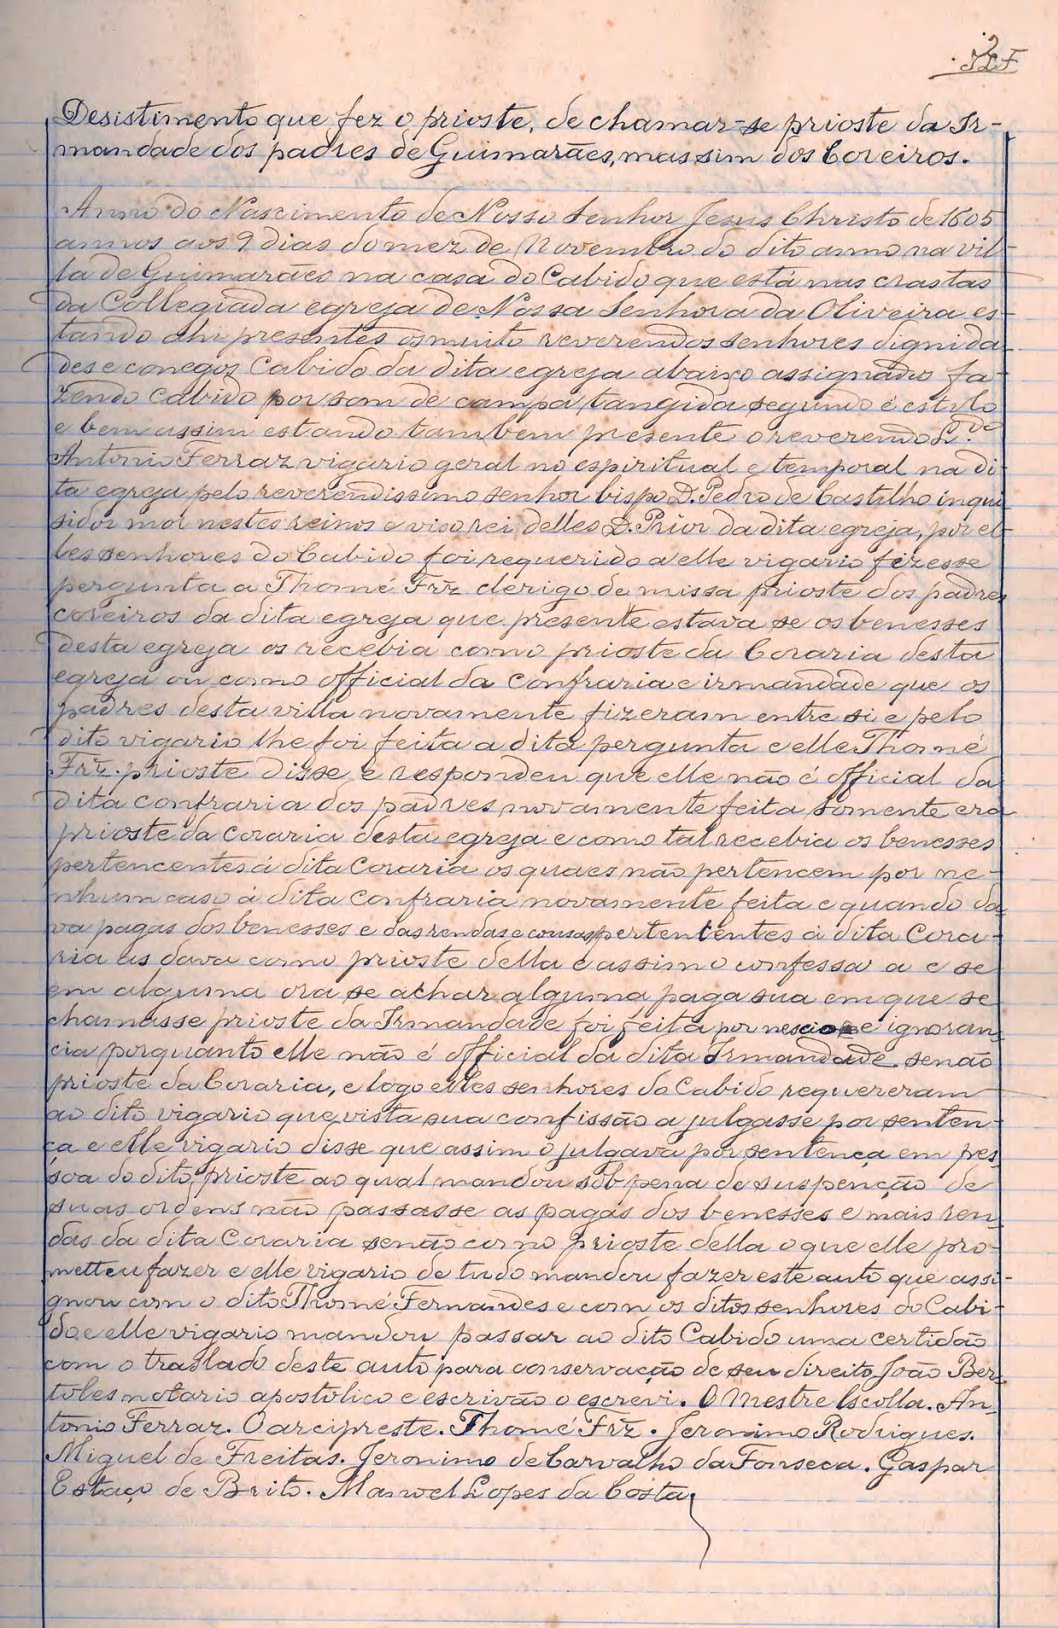 2
Desistimento que fez o prioste, de chamar-se prioste da Ir-
mandade dos padres de Guimarães, mas sim dos Coreiros.
Anno do Nascimento de Nosso Senhor Jesus Christo de 1605
annos aos 9 dias do mez de Novembro do dito anno na vil-
la de Guimarães na casa do Cabido que está nas crastas
da Collegiada egreja de Nossa Senhora da Oliveira es-
tando ahi presentes os muito reverendos senhores dignida-
des e conegos Cabido da dita egreja abaixo assignados fa-
zendo cabido por som de campa tangida segundo é estylo
e bem assim estando tambem presente o reverendo L.do
Antonio Ferraz vigario geral no espiritual e temporal na di-
ta egreja pelo reverendissimo senhor bispo D. Pedro de Castilho inqui-
sidor mor nestes reinos e viso rei delles D. Prior da dita egreja, por el-
les senhores do Cabido foi requerido a elle vigario fizesse
pergunta a Thomé Frz clerigo de missa prioste dos padres
coreiros da dita egreja que presente estava se os benesses
desta egreja os recebia como prioste da Coraria desta
egreja ou como official da confraria e irmandade que os
padres desta villa novamente fizeram entre si e pelo
dito vigario lhe foi feita a dita pergunta e elle Thomé
Frz. prioste disse e respondeu que elle não é official da
dita confraria dos padres novamente feita somente era
prioste da coraria desta egreja e como tal recebia os benesses
pertencentes á dita Coraria os quaes não pertencem por ne-
nhum caso á dita confraria novamente feita e quando da-
va pagas dos benesses e das rendas e cousas pertententes á dita Cora-
ria as dava como prioste della e assim o confessa a e se
em alguma ora se achar alguma paga sua em que se
chamasse prioste da Irmandade foi feita por nescio e ignoran-
cia porquanto elle não é official da dita Irmandade senão
prioste da Coraria, e logo elles senhores do Cabido requereram
ao dito vigario que vista sua confissão a julgasse por senten-
ça e elle vigario disse que assim o julgava por sentença em pes-
soa do dito prioste ao qual mandou sob pena de suspenção de
suas ordens não passasse as pagas dos benesses e mais ren-
das da dita Coraria senão como prioste della o que elle pro-
metteu fazer e elle vigario de tudo mandou fazer este auto que assi-
gnou com o dito Thomé Fernandes e com os ditos senhores do Cabi-
do e elle vigario mandou passar ao dito Cabido uma certidão
com o traslado deste auto para conservação de seu direito João Ber-
toles notario apostolico e escrivão o escrevi. O Mestre Escolla. An-
tonio Ferraz. O arcipreste. Thomé Frz. Jeronimo Rodrigues.
Miguel de Freitas. Jeronimo de Carvalho da Fonseca. Gaspar
Estaço de Brito. Manoel Lopes da Costa